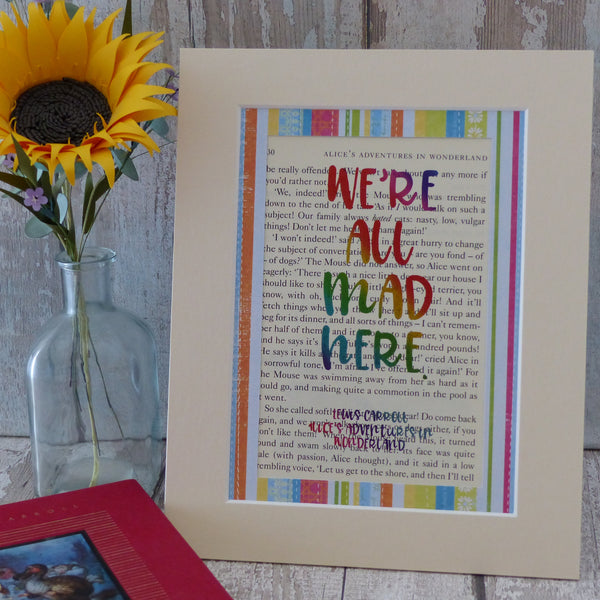 30 ALICE'S ADVENTURES IN WONDERLAND
be really offended any more if
you'd rather not
'We, indeed!' Mouse, who was trembling
down to the end of 'As if I would talk on such a
subject! Our family always hated cats: nasty, low, vulgar
things! Don't let me again!'
'I won't indeed!' said in great hurry to change
the subject of conversation are you fond – of
– of dogs?' The Mouse did not answer, so Alice went on
eagerly: 'There is such a nice little dog near our house I
should like to show eyed terrier, you
know, with oh, hair! And it'll
fetch things when it'll sit up and
beg for its dinner, and all sorts of things – I can't remem-
ber half of them – and it
and he says it's hundred pounds!
He says it kills all the cried Alice in
a sorrowful tone. 'I'm afraid I've offended it again!' For
the Mouse was swimming away from her as hard as it
could go, and making quite a commotion in the pool as
it went.
So she called softly dear! Do come back
again, and we either, if you
don't like them!' this, it turned
round and swam slowly back to her: its face was quite
pale (with passion, Alice thought), and it said in a low
trembling voice, 'Let us get to the shore, and then I'll tell
WE'RE
ALL
MAD
HERE.
LEWIS CARROLL
ALICE'S ADVENTURES IN
WONDERLAND